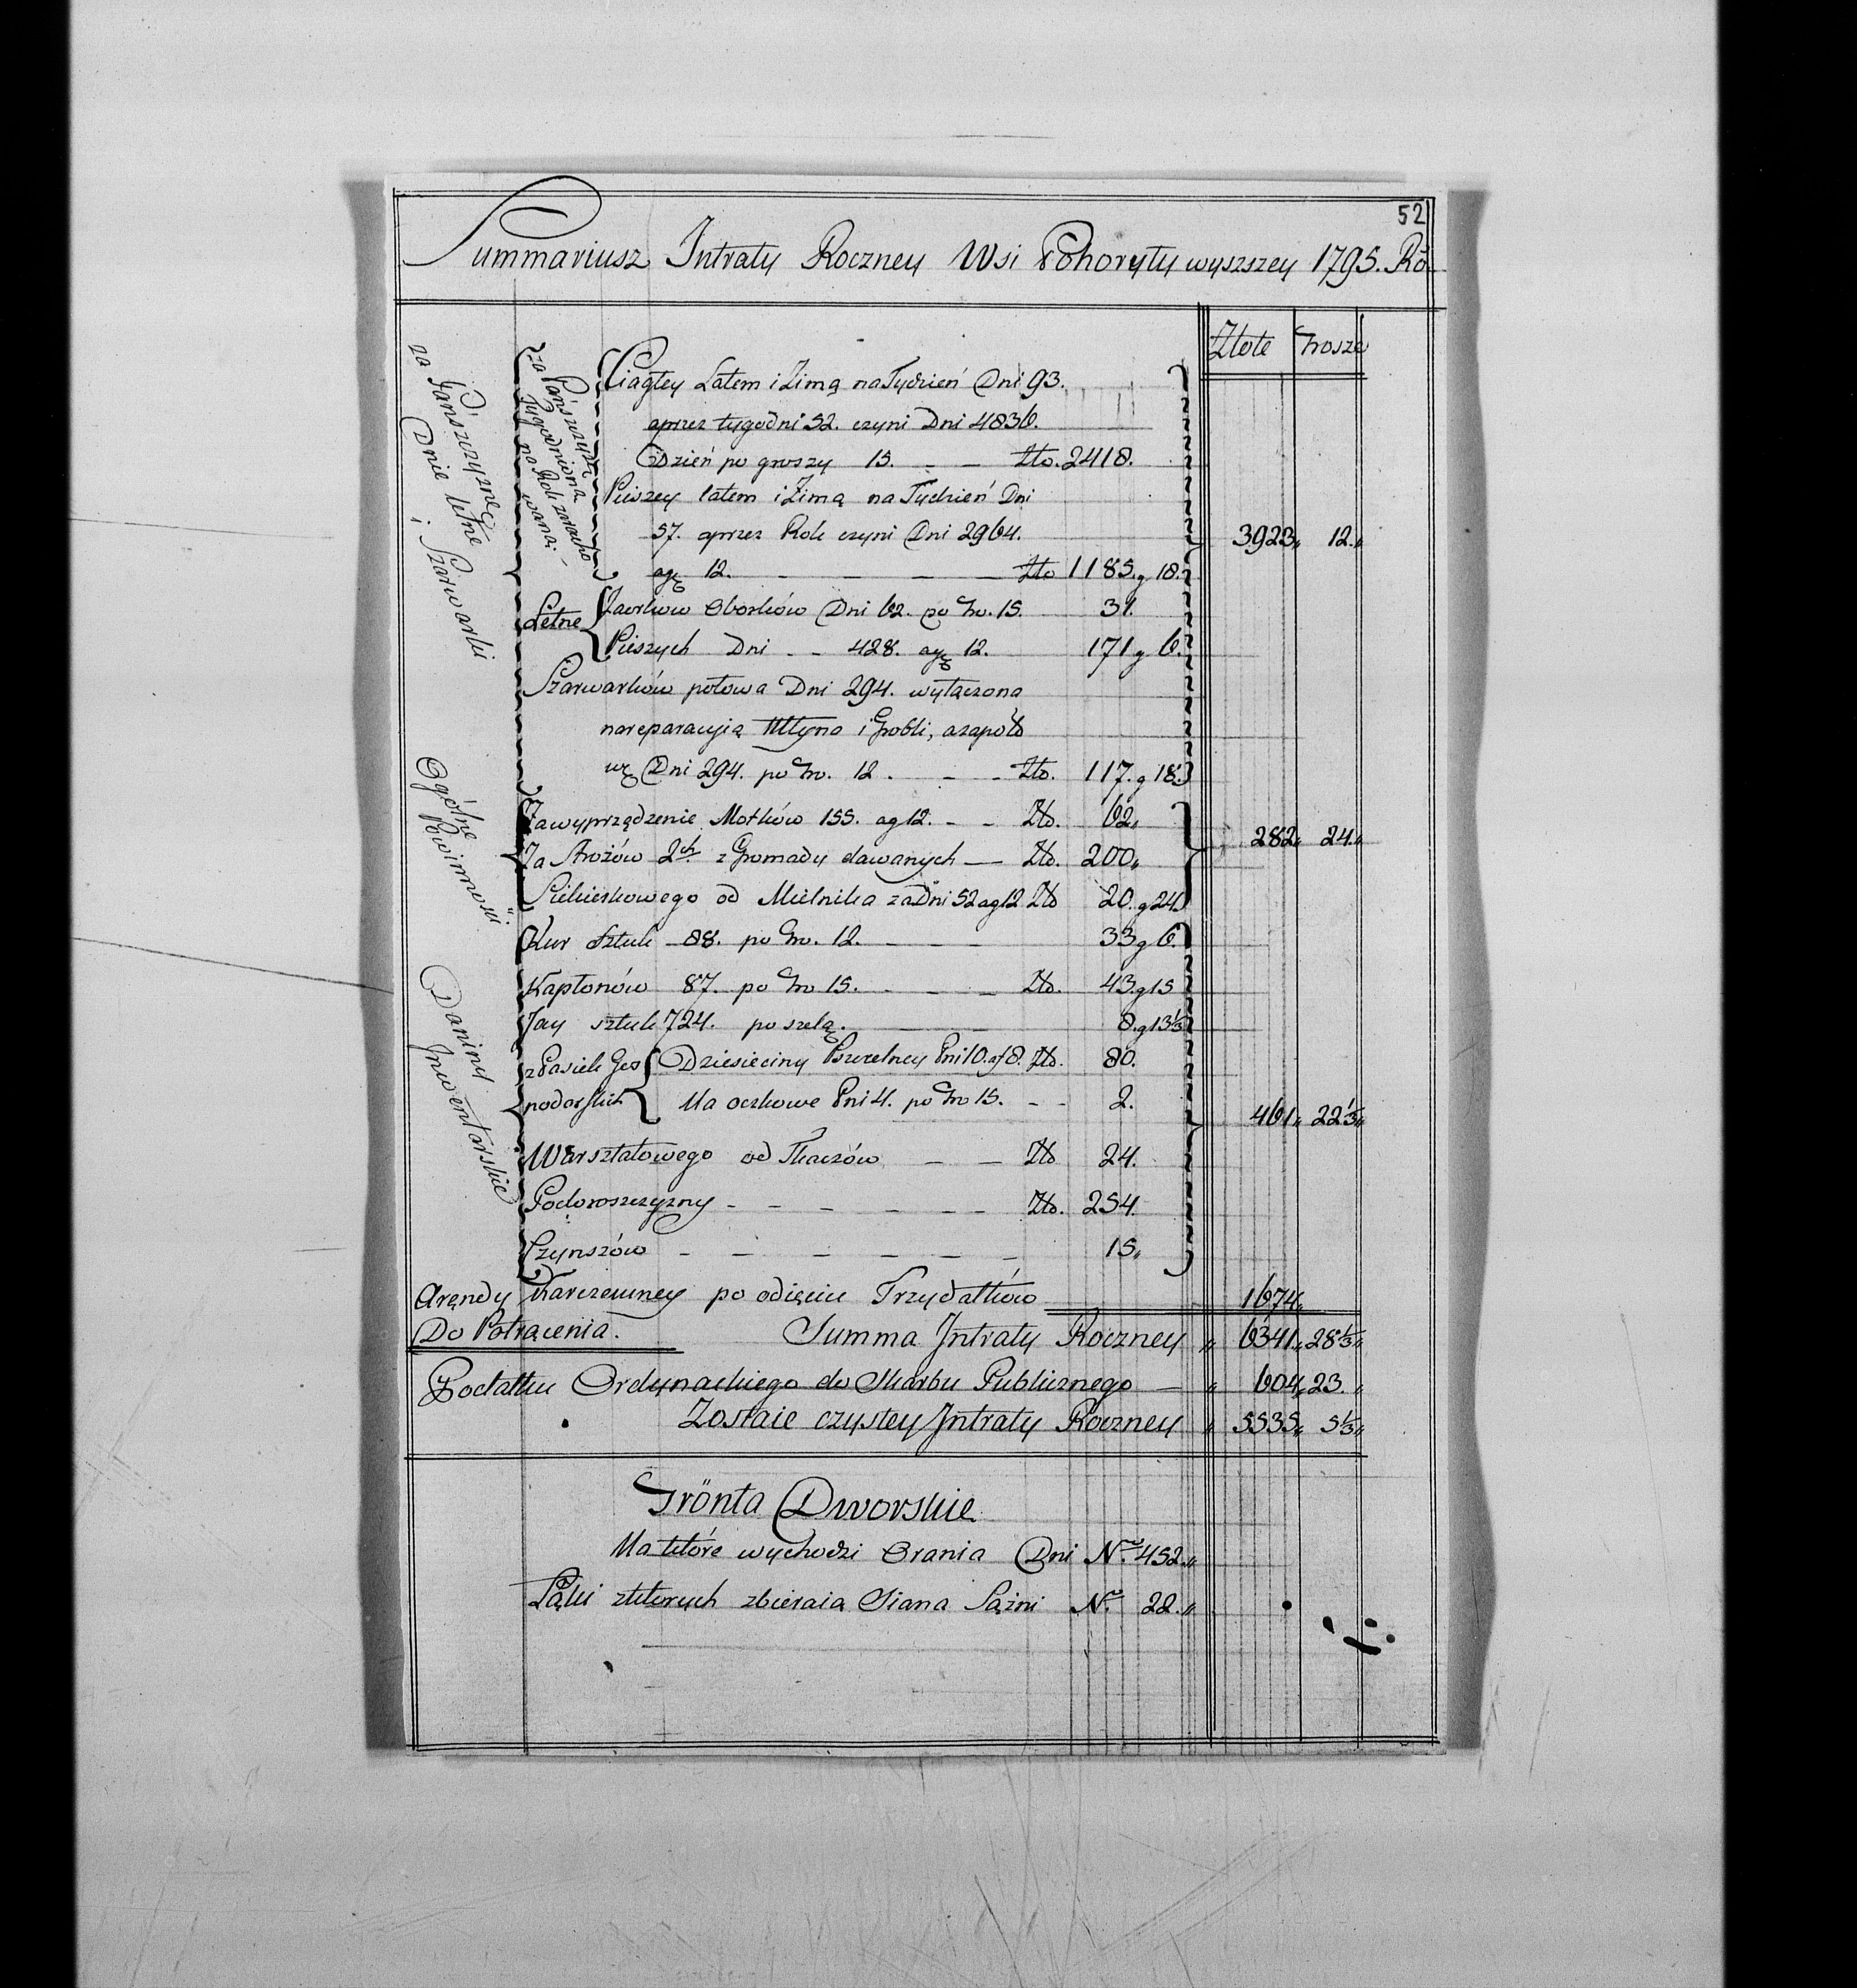 52
Summariusz Intraty Roczney Wsi Pohoryły wyszszey 1795. Ro
Złote Grosze
za Pańszczyznę
Dnie letne
i Szarwarki
za Pańszczyznę
Tygodniową
na Rok zaracho
waną
Ciągłey Latem i Zimą na Tydzień Dni 93.
aprzez tygodni 52. czyni Dni 4836.
Dzień po groszy 15. – – Zło. 2418.
Pieszey latem i Zimą na Tydzień Dni
57. aprzez Rok czyni Dni 2964.
agr 12. – – – – Zło 1185. g 18.
3923 „ 12. „
Letne
Zaorkow Oborków Dni 62. po Gro. 15. 31.
Pieszych Dni – – 428. agr 12. 171 g 6.
Szarwarków połowa Dni 294. wyłączona
nareparacyią Młyna i Grobli, azapoło
wę Dni 294. po Gro. 12. – – Zło. 117. g 18.
Ogólne
Powinności
Zawyprządzenie Motków 155. ag 12. – – Zło. 62 „
Za Stróżów 2ch z Gromady dawanych — Zło. 200 „
282 „ 24. „
Siekierkowego od Mielnika za Dni 52 ag 12 Zło 20. g 24.
Daniny
Inwentarskie
Kur Sztuk 88. po Gro. 12. – – – 33 g 6.
Kapłonów 87. po Gro 15. – – – Zło. 43. g 15
Jay sztuk 724. po szelą. 8. g 13 1/3
z Pasiek Gos
podarskich
Dziesięciny Pszczelney Pni 10. af 8. Zło. 80.
Na oczkowe Pni 4. po Gro 15. – – 2.
461 „ 22 1/3 „
Warsztatowego od Tkaczów – – Zło 24.
Podoroszczyzny – – – – – – Zło. 254.
Czynszów – – – – – – 15 „
Arędy Karczemney po odięciu Przydatków 1674 „
Do Potrącenia. Summa Intraty Roczney „ 6341 „ 28 1/3 „
Podatku Ordynackiego do Skarbu Publicznego — „ 604 „ 23. „
Zostaie czystey Intraty Roczney „ 5535 „ 5 1/3 „
Grönta Dworskie
Na które wychodzi Orania Dni No. 452. „
Łąki zktórych zbieraią Siana Sążni No. 22. „